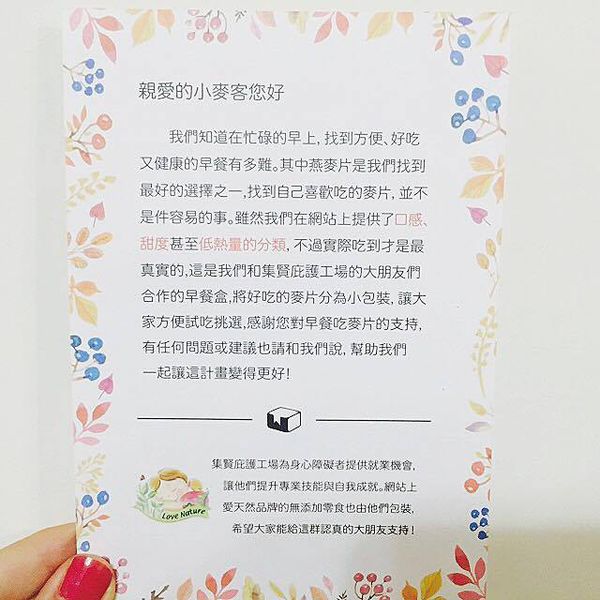 親愛的小麥客您好
我們知道在忙碌的早上, 找到方便、好吃
又健康的早餐有多難。其中燕麥片是我們找到
最好的選擇之一,找到自己喜歡吃的麥片, 並不
是件容易的事。雖然我們在網站上提供了口感、
甜度甚至低熱量的分類, 不過實際吃到才是最
真實的,這是我們和集賢庇護工場的大朋友們
合作的早餐盒,將好吃的麥片分為小包裝, 讓大
家方便試吃挑選,感謝您對早餐吃麥片的支持,
有任何問題或建議也請和我們說, 幫助我們
一起讓這計畫變得更好!
W
集賢庇護工場為身心障礙者提供就業機會,
讓他們提升專業技能與自我成就。網站上
愛天然品牌的無添加零食也由他們包裝,
希望大家能給這群認真的大朋友支持!
Love Nature